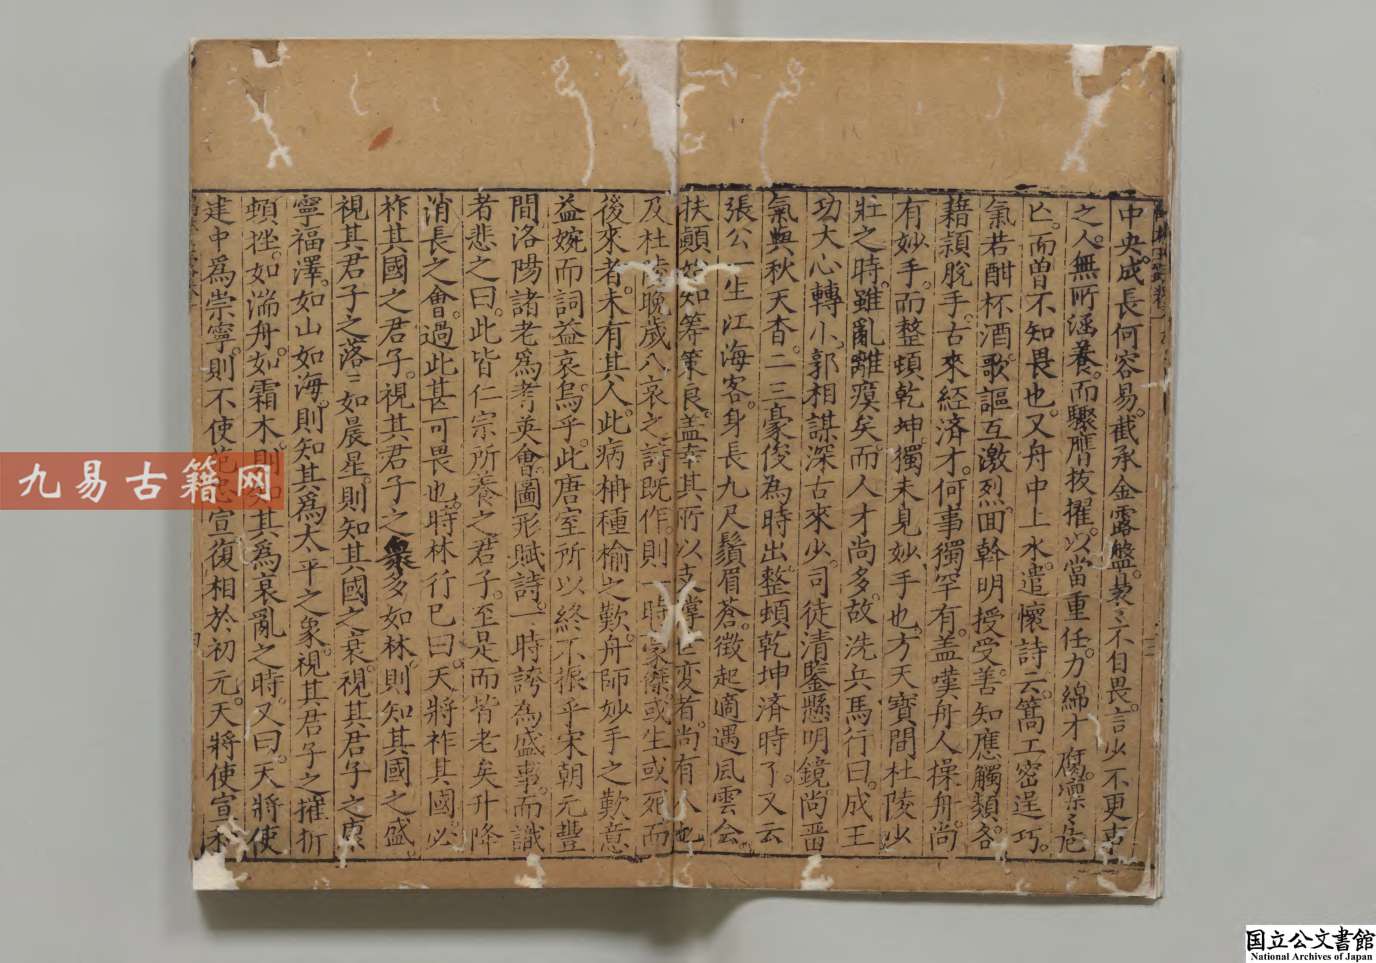 中央。成長何容易。截承金露盤。 不自畏。言少不更
之人。無所涵養。而驟膺拔擢。以當重任。力綿才腐。 危
亡。而曾不知畏也。又舟中上水。遣懷詩云。篙工密逞巧。
氣若酣杯酒。歌謳互激烈。回斡明授受。善知應觸類。各
藉穎脫手。古來經濟才。何事獨罕有。蓋嘆舟人操舟。尚
有妙手。而整頓乾坤。獨未見妙手也。方天寶間。杜陵少
壯之時。雖亂離瘼矣。而人才尚多。故洗兵馬行曰。成王
功大心轉小。郭相謀深古來少。司徒清鑒懸明鏡。尚書
氣與秋天杳。二三豪俊為時出。整頓乾坤済時了。又云
張公一生江海客。身長九尺鬚眉蒼。徵起適遇風雲会。
扶顛始知筹策良。盖幸其所以支撐世变者。尚有人也
及杜陵晚歲。八哀之詩既作。則一時豪傑或生或死。而
後來者。未有其人。此病枬種榆之歎。舟師妙手之歎。意
益婉而詞益哀。烏乎。此唐室所以終不振乎。宋朝元豐
間。洛陽諸老為耆英會。圖形賦詩。一時誇為盛事。而識
者悲之曰。此皆仁宗所養之君子。至是而皆老矣。升降
消長之會。過此甚可畏也。時林行已曰。天將祚其國。必
祚其國之君子。視其君子之衆多如林。則知其國之盛。
視其君子之落〻如晨星。則知其國之衰。視其君子之康
寧福澤。如山如海。則知其為太平之象。視其君子之摧折
頓挫。如湍舟。如霜木。則知其為衰亂之時。又曰。天將使
建中為崇寧。則不使范忠宣復相於初元。天將使宣和
九易古籍网
国立公文書館
National Archives of Japan